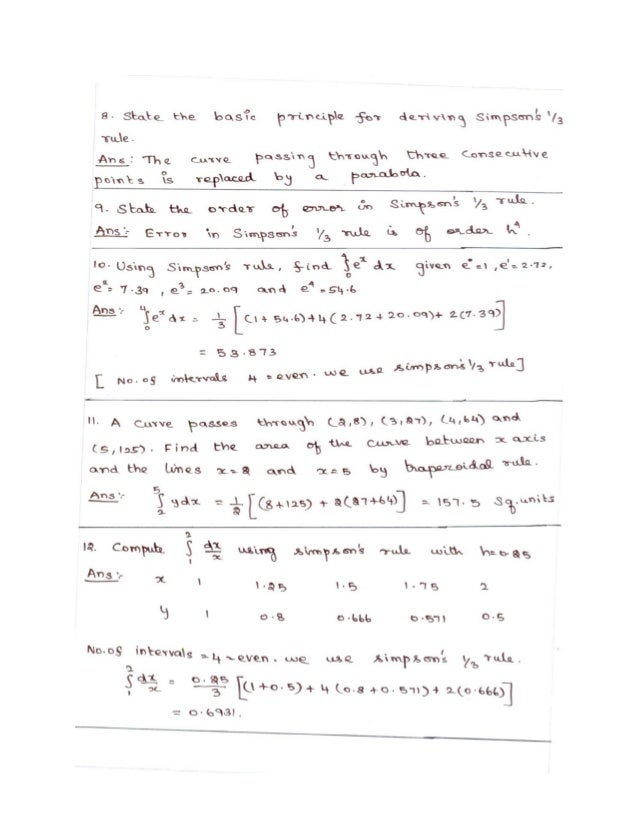 8. State the basic principle for deriving Simpson's 1/3
rule.
Ans: The curve passing through three consecutive
points is replaced by a parabola.
9. State the order of error in Simpson's 1/3 rule.
Ans: Error in Simpson's 1/3 rule is of order h⁴.
10. Using Simpson's rule, find ∫₀⁴ eˣ dx given e⁰=1, e¹=2.72,
e²=7.39, e³=20.09 and e⁴=54.6
Ans: ∫₀⁴ eˣ dx = 1/3 [(1+54.6)+4(2.72+20.09)+2(7.39)]
= 53.873
[No. of intervals 4 = even. we use simpson's 1/3 rule]
11. A curve passes through (2,8), (3,27), (4,64) and
(5,125). Find the area of the curve between x axis
and the lines x=2 and x=5 by trapezoidal rule.
Ans: ∫₂⁵ ydx = 1/2 [(8+125) + 2(27+64)] = 157.5 Sq.units
12. Compute ∫₁² dx/x using simpson's rule with h=0.25
Ans: x 1 1.25 1.5 1.75 2
y 1 0.8 0.666 0.571 0.5
No. of intervals = 4 = even. we use simpson's 1/3 rule.
∫₁² dx/x = 0.25/3 [(1+0.5)+4(0.8+0.571)+2(0.666)]
= 0.6931.